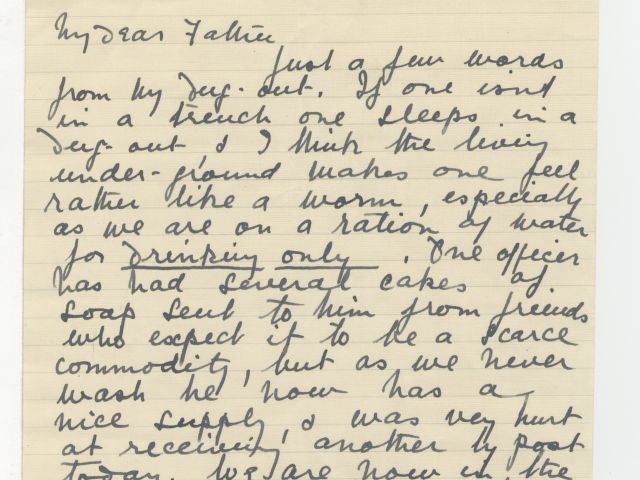 My dear Father
Just a few words
from my dug-out. If one isnt
in a trench one sleeps in a
dug-out, & I think the living
under-ground makes one feel
rather like a worm, especially
as we are on a ration of water
for drinking only. One officer
has had several cakes of
soap sent to him from friends
who expect it to be a scarce
commodity, but as we never
wash he now has a
nice supply, & was very hurt
at receiving another by post
today. We are now in the